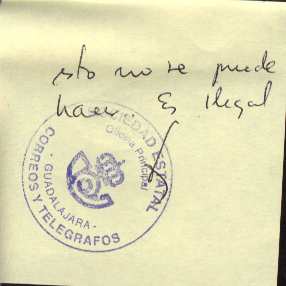 esto no se puede
hacer Es Ilegal
SOCIEDAD ESTATAL
CORREOS Y TELEGRAFOS
Oficina Principal
- GUADALAJARA -